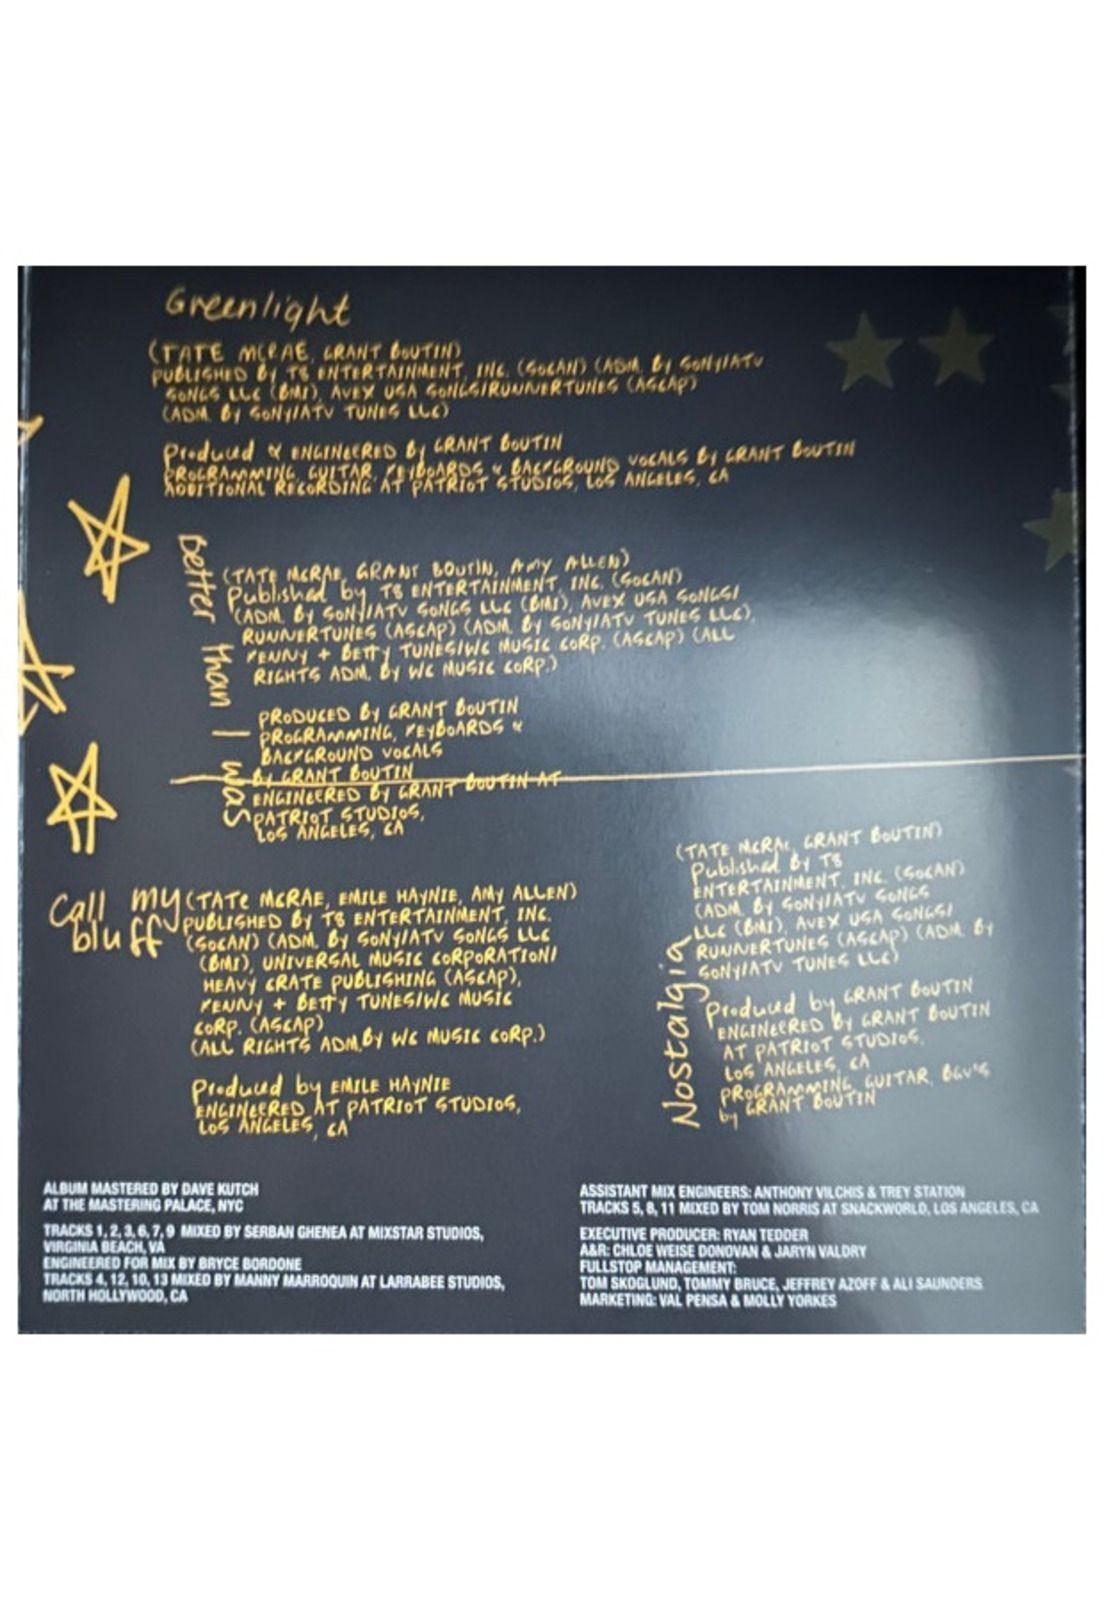 Greenlight
(TATE MCRAE, GRANT BOUTIN)
PUBLISHED BY T8 ENTERTAINMENT, INC. (SOCAN) (ADM. BY SONY/ATV
SONGS LLC (BMI), AVEX USA SONGS/RUNNERTUNES (ASCAP)
(ADM. BY SONY/ATV TUNES LLC)
Produced & ENGINEERED BY GRANT BOUTIN
PROGRAMMING, GUITAR, KEYBOARDS & BACKGROUND VOCALS BY GRANT BOUTIN
ADDITIONAL RECORDING AT PATRIOT STUDIOS, LOS ANGELES, CA
better than I was
(TATE MCRAE, GRANT BOUTIN, AMY ALLEN)
Published by T8 ENTERTAINMENT, INC. (SOCAN)
(ADM. BY SONY/ATV SONGS LLC (BMI), AVEX USA SONGS/
RUNNERTUNES (ASCAP) (ADM. BY SONY/ATV TUNES LLC),
KENNY + BETTY TUNES/WC MUSIC CORP. (ASCAP) (ALL
RIGHTS ADM. BY WC MUSIC CORP.)
PRODUCED BY GRANT BOUTIN
PROGRAMMING, KEYBOARDS &
BACKGROUND VOCALS
BY GRANT BOUTIN
ENGINEERED BY GRANT BOUTIN AT
PATRIOT STUDIOS,
LOS ANGELES, CA
call my
bluff
(TATE MCRAE, EMILE HAYNIE, AMY ALLEN)
PUBLISHED BY T8 ENTERTAINMENT, INC.
(SOCAN) (ADM. BY SONY/ATV SONGS LLC
(BMI), UNIVERSAL MUSIC CORPORATION/
HEAVY CRATE PUBLISHING (ASCAP),
KENNY + BETTY TUNES/WC MUSIC
CORP. (ASCAP)
(ALL RIGHTS ADM. BY WC MUSIC CORP.)
Produced by EMILE HAYNIE
ENGINEERED AT PATRIOT STUDIOS,
LOS ANGELES, CA
Nostalgia
(TATE MCRAE, GRANT BOUTIN)
Published BY T8
ENTERTAINMENT, INC. (SOCAN)
(ADM. BY SONY/ATV SONGS
LLC (BMI), AVEX USA SONGS/
RUNNERTUNES (ASCAP) (ADM. BY
SONY/ATV TUNES LLC)
Produced by GRANT BOUTIN
ENGINEERED BY GRANT BOUTIN
AT PATRIOT STUDIOS,
LOS ANGELES, CA
PROGRAMMING, GUITAR, BGV'S
by GRANT BOUTIN
ALBUM MASTERED BY DAVE KUTCH
AT THE MASTERING PALACE, NYC
TRACKS 1, 2, 3, 6, 7, 9 MIXED BY SERBAN GHENEA AT MIXSTAR STUDIOS,
VIRGINIA BEACH, VA
ENGINEERED FOR MIX BY BRYCE BORDONE
TRACKS 4, 12, 10, 13 MIXED BY MANNY MARROQUIN AT LARRABEE STUDIOS,
NORTH HOLLYWOOD, CA
ASSISTANT MIX ENGINEERS: ANTHONY VILCHIS & TREY STATION
TRACKS 5, 8, 11 MIXED BY TOM NORRIS AT SNACKWORLD, LOS ANGELES, CA
EXECUTIVE PRODUCER: RYAN TEDDER
A&R: CHLOE WEISE DONOVAN & JARYN VALDRY
FULLSTOP MANAGEMENT:
TOM SKOGLUND, TOMMY BRUCE, JEFFREY AZOFF & ALI SAUNDERS
MARKETING: VAL PENSA & MOLLY YORKES